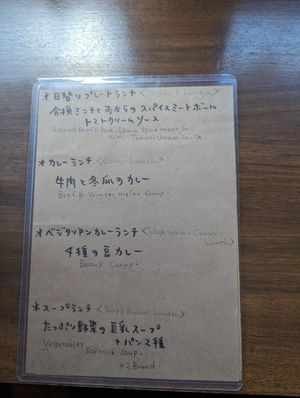 *日替りプレートランチ <Today's Lunch>
合挽ミンチとおからのスパイスミートボール
トマトクリームソース
Ground Beef & Pork, Okara Spice Meat Ball
with Tomato Cream Sauce
*カレーランチ <Curry Lunch>
牛肉と冬瓜のカレー
Beef & Winter melon Curry.
*ベジタリアンカレーランチ <Vegetarian Curry
Lunch>
4種の豆カレー
Beans Curry.
*スープランチ < Lunch>
たっぷり野菜の豆乳スープ
+パン2種
Vegetables
Soymilk Soup.
+2 Bread.